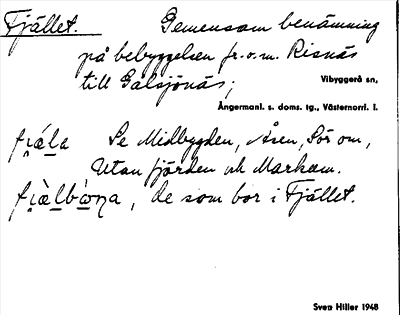 Fjället. Gemensam benämning
på bebyggelsen fr.o.m. Risnäs
till Galsjönäs;
Vibyggerå sn,
Ångermanl. s. doms. tg., Västernorrl. l.
fi̯ǻla Se Midbygden, Åsen, Sör om,
Utan fjärden och Markom.
de som bor i Fjället.
Sven Hiller 1948